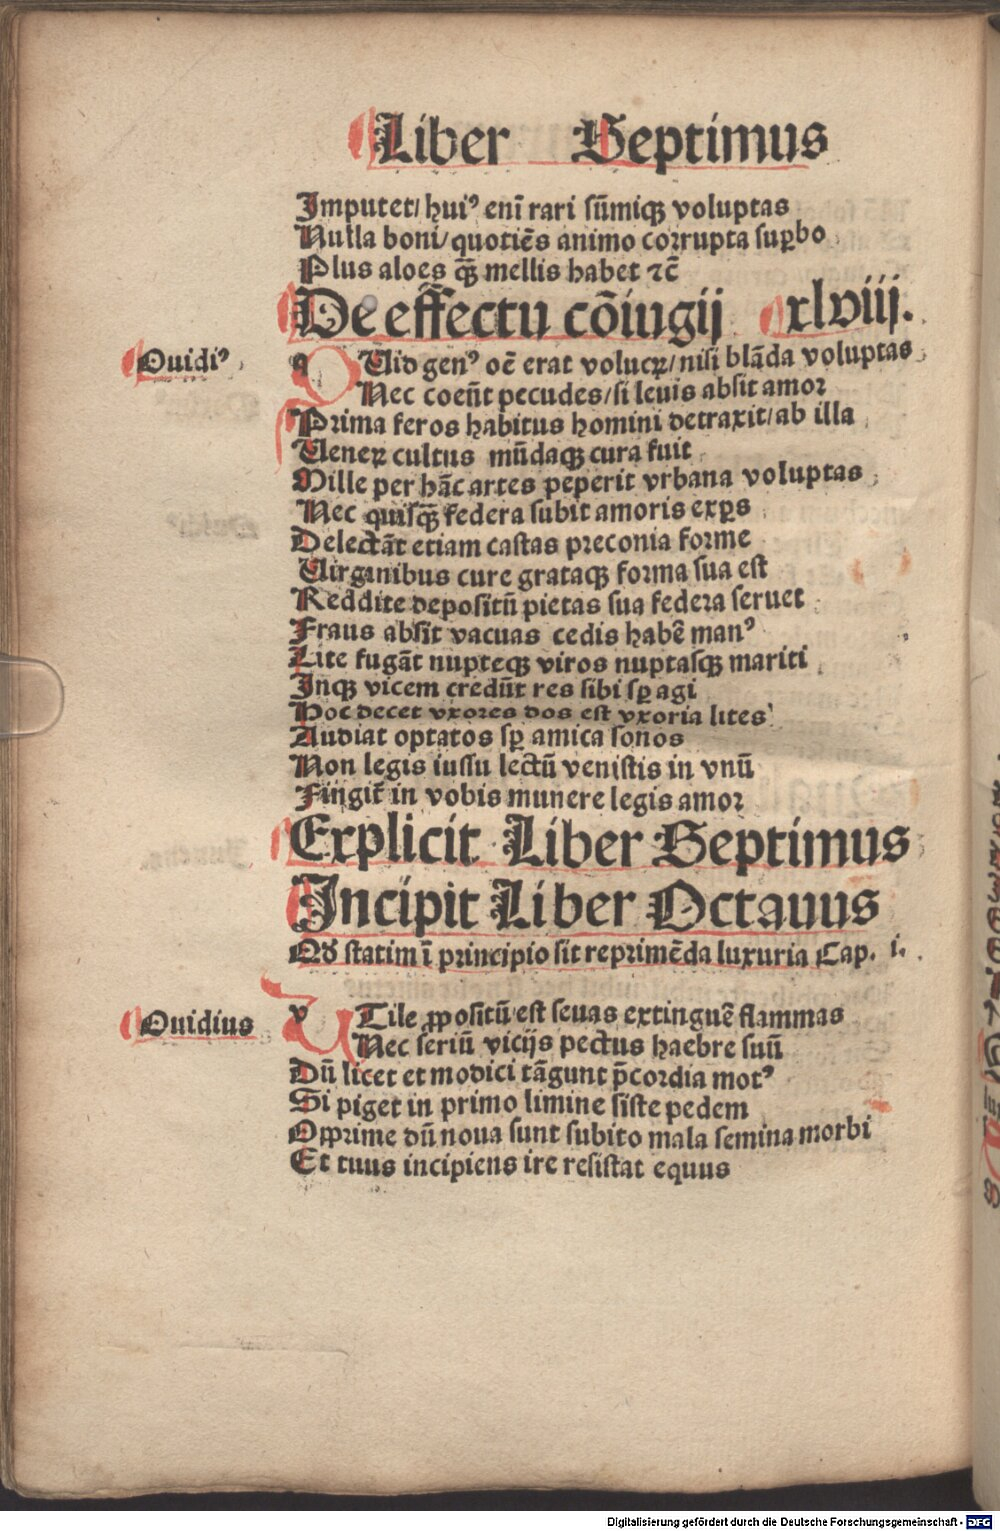 Liber Septimus
Imputet/ huiꝰ eni̅ rari su̅miqꝫ voluptas
Nulla boni/ quotie̅s animo corrupta suꝑbo
Plus aloes qꝫ̅ mellis habet ⁊c̅
De effectu co̅iugij xlviij.
Ouidiꝰ
qUid genꝰ oc̅ erat volucꝝ/ nisi bla̅da voluptas
Nec coeu̅t pecudes/ si leuis absit amor
Prima feros habitus homini detraxit/ ab illa
Ueneꝝ cultus mu̅daqꝫ cura fuit
Mille per ha̅c artes peperit vrbana voluptas
Nec quisqꝫ̅ federa subit amoris exꝑs
Delecta̅t etiam castas preconia forme
Uirginibus cure grataqꝫ forma sua est
Reddite depositu̅ pietas sua federa seruet
Fraus absit vacuas cedis habe̅ manꝰ
Lite fuga̅t nupteqꝫ viros nuptasqꝫ mariti
Inqꝫ vicem credu̅t res sibi sꝑ agi
Hoc decet vxores dos est vxoria lites
Audiat optatos sꝑ amica sonos
Non legis iussu lectu̅ venistis in vnu̅
Fingit̅ in vobis munere legis amor
Explicit Liber Septimus
Incipit Liber Octauus
Qd̅ statim i̅ principio sit reprime̅da luxuria Cap. i.
Ouidius
vTile ꝓpositu̅ est seuas extingue̅ flammas
Nec seriu̅ vicijs pectus haebre suu̅
Du̅ licet et modici ta̅gunt p̅cordia motꝰ
Si piget in primo limine siste pedem
Opprime du̅ noua sunt subito mala semina morbi
Et tuus incipiens ire resistat equus
Digitalisierung gefördert durch die Deutsche Forschungsgemeinschaft - DFG